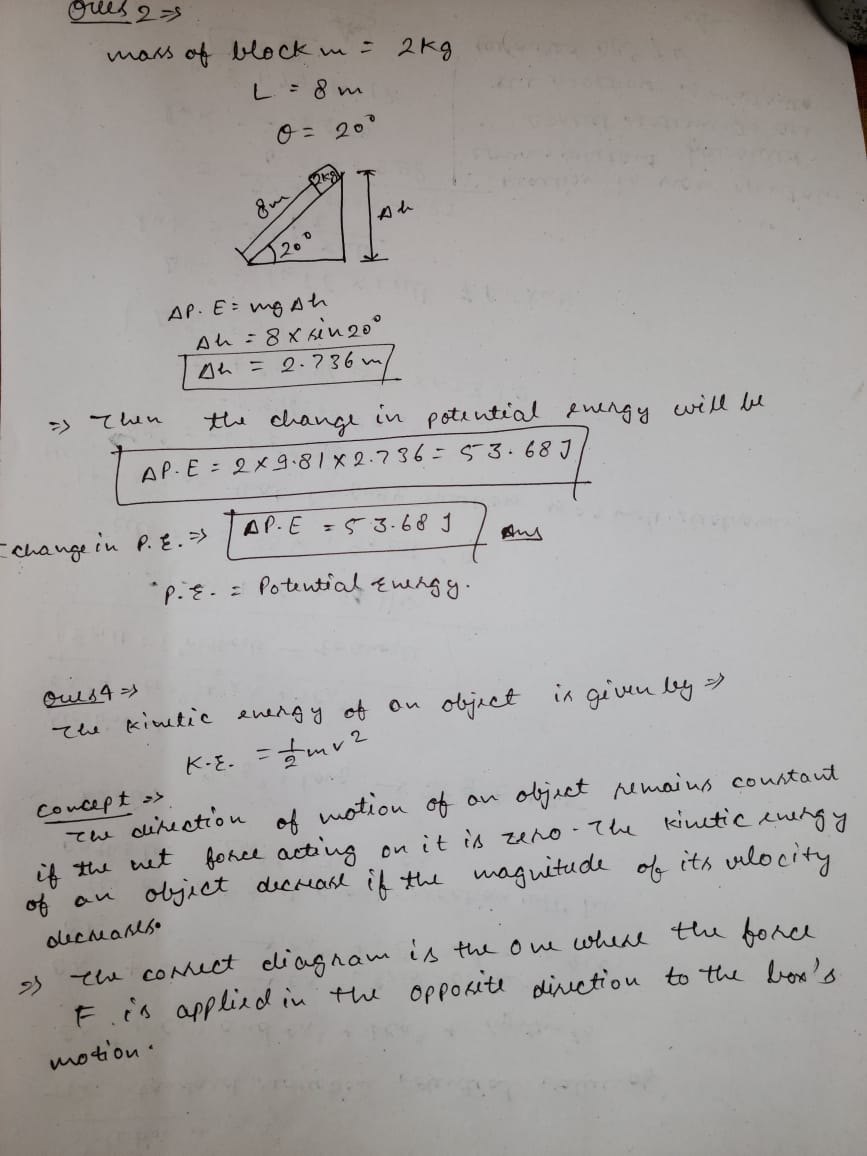 Ques 2 ⇒
mass of block m = 2kg
L = 8 m
θ = 20°
2kg
8m
Δh
20°
ΔP.E = mg Δh
Δh = 8 × sin 20°
Δh = 2.736 m
⇒ Then the change in potential energy will be
ΔP.E = 2×9.81×2.736 = 53.68 J
change in P.E. ⇒ ΔP.E = 53.68 J Ans
*P.E. = Potential Energy.
Ques4 ⇒
The kinetic energy of an object is given by ⇒
K.E. = 1/2 mv²
concept ⇒
The direction of motion of an object remains constant
if the net force acting on it is zero. The kinetic energy
of an object decrease if the magnitude of its velocity
decreases.
⇒ The correct diagram is the one where the force
F is applied in the opposite direction to the box's
motion.